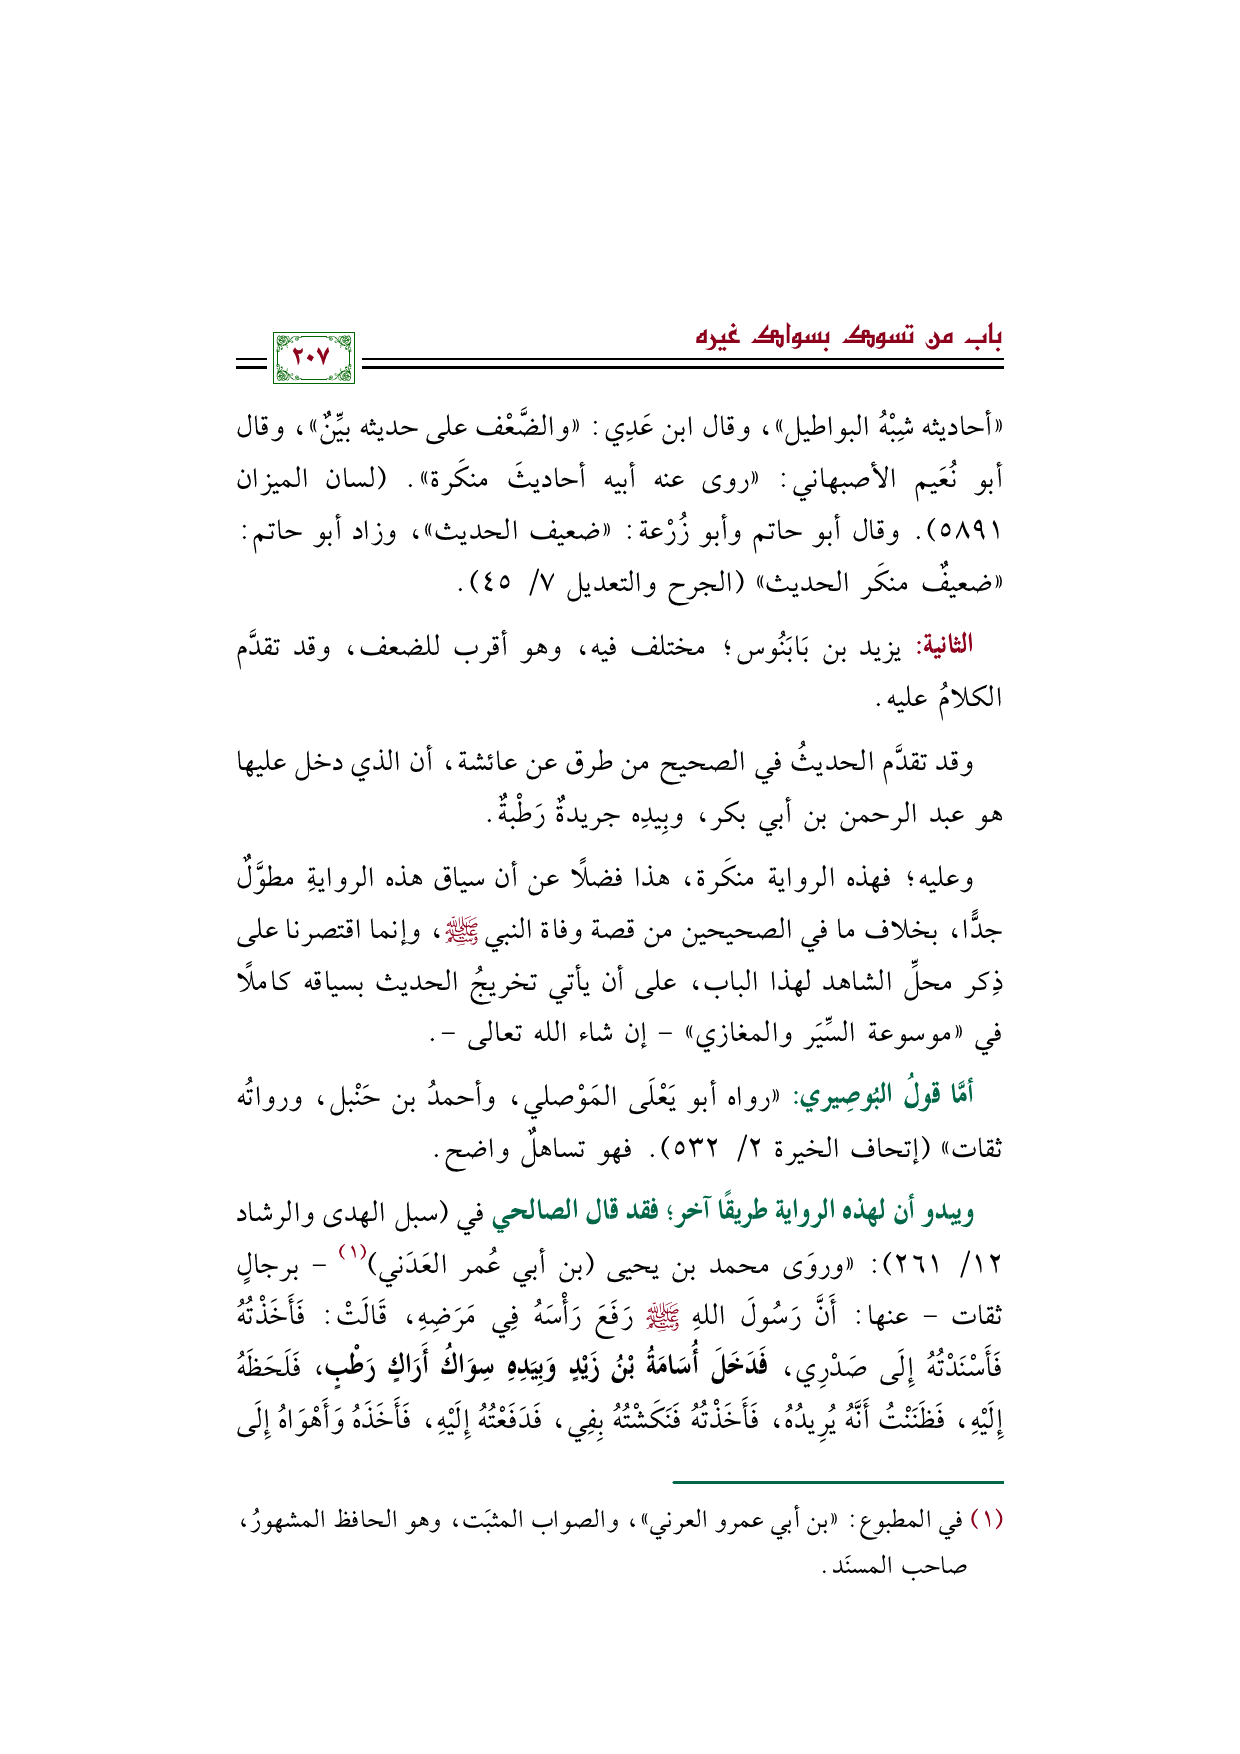 باب من تسوك بسواك غيره
٢٠٧
«أحاديثه شِبْهُ البواطيل»، وقال ابن عَدِي: «والضَّعْف على حديثه بيِّنٌ»، وقال
أبو نُعَيم الأصبهاني: «روى عنه أبيه أحاديثَ منكَرة». (لسان الميزان
٥٨٩١). وقال أبو حاتم وأبو زُرْعة: «ضعيف الحديث»، وزاد أبو حاتم:
«ضعيفٌ منكَر الحديث» (الجرح والتعديل ٧/ ٤٥).
الثانية: يزيد بن بَابَنُوس؛ مختلف فيه، وهو أقرب للضعف، وقد تقدَّم
الكلامُ عليه.
وقد تقدَّم الحديثُ في الصحيح من طرق عن عائشة، أن الذي دخل عليها
هو عبد الرحمن بن أبي بكر، وبِيدِه جريدةٌ رَطْبةٌ.
وعليه؛ فهذه الرواية منكَرة، هذا فضلًا عن أن سياق هذه الروايةِ مطوَّلٌ
جدًّا، بخلاف ما في الصحيحين من قصة وفاة النبي ﷺ، وإنما اقتصرنا على
ذِكر محلِّ الشاهد لهذا الباب، على أن يأتي تخريجُ الحديث بسياقه كاملًا
في «موسوعة السِّيَر والمغازي» – إن شاء الله تعالى –.
أمَّا قولُ البُوصِيري: «رواه أبو يَعْلَى المَوْصلي، وأحمدُ بن حَنْبل، ورواتُه
ثقات» (إتحاف الخيرة ٢/ ٥٣٢). فهو تساهلٌ واضح.
ويبدو أن لهذه الرواية طريقًا آخر؛ فقد قال الصالحي في (سبل الهدى والرشاد
١٢/ ٢٦١): «وروَى محمد بن يحيى (بن أبي عُمر العَدَني)(١) – برجالٍ
ثقات – عنها: أَنَّ رَسُولَ اللهِ ﷺ رَفَعَ رَأْسَهُ فِي مَرَضِهِ، قَالَتْ: فَأَخَذْتُهُ
فَأَسْنَدْتُهُ إِلَى صَدْرِي، فَدَخَلَ أُسَامَةُ بْنُ زَيْدٍ وَبِيَدِهِ سِوَاكُ أَرَاكٍ رَطْبٍ، فَلَحَظَهُ
إِلَيْهِ، فَظَنَنْتُ أَنَّهُ يُرِيدُهُ، فَأَخَذْتُهُ فَنَكَشْتُهُ بِفِي، فَدَفَعْتُهُ إِلَيْهِ، فَأَخَذَهُ وَأَهْوَاهُ إِلَى
(١) في المطبوع: «بن أبي عمرو العرني»، والصواب المثبَت، وهو الحافظ المشهورُ،
صاحب المسنَد.